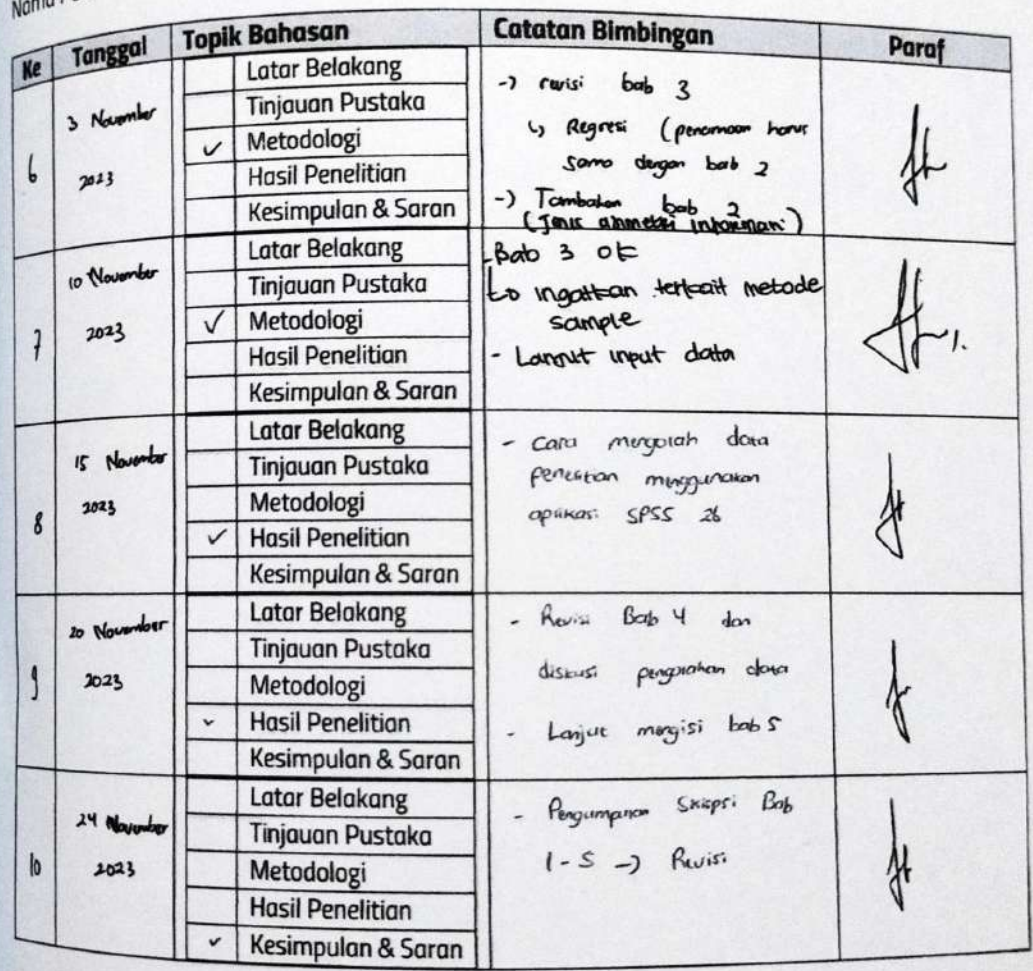 Ke Tanggal Topik Bahasan Catatan Bimbingan Paraf
6
3 November
2023
Latar Belakang
Tinjauan Pustaka
✓ Metodologi
Hasil Penelitian
Kesimpulan & Saran
-) revisi bab 3
↳ Regresi (penamaan harus
sama dengan bab 2
-) Tambahan bab 2
(Jenis asimetri informasi)
7
10 November
2023
Latar Belakang
Tinjauan Pustaka
✓ Metodologi
Hasil Penelitian
Kesimpulan & Saran
- Bab 3 OK
↳ ingatkan terkait metode
sample
- Lanjut input data
8
15 November
2023
Latar Belakang
Tinjauan Pustaka
Metodologi
✓ Hasil Penelitian
Kesimpulan & Saran
- Cara mengolah data
penelitian menggunakan
aplikasi SPSS 26
9
20 November
2023
Latar Belakang
Tinjauan Pustaka
Metodologi
✓ Hasil Penelitian
Kesimpulan & Saran
- Revisi Bab 4 dan
diskusi pengolahan data
- Lanjut mengisi bab 5
10
24 November
2023
Latar Belakang
Tinjauan Pustaka
Metodologi
Hasil Penelitian
✓ Kesimpulan & Saran
- Pengumpulan Skripsi Bab
1 - 5 -) Revisi